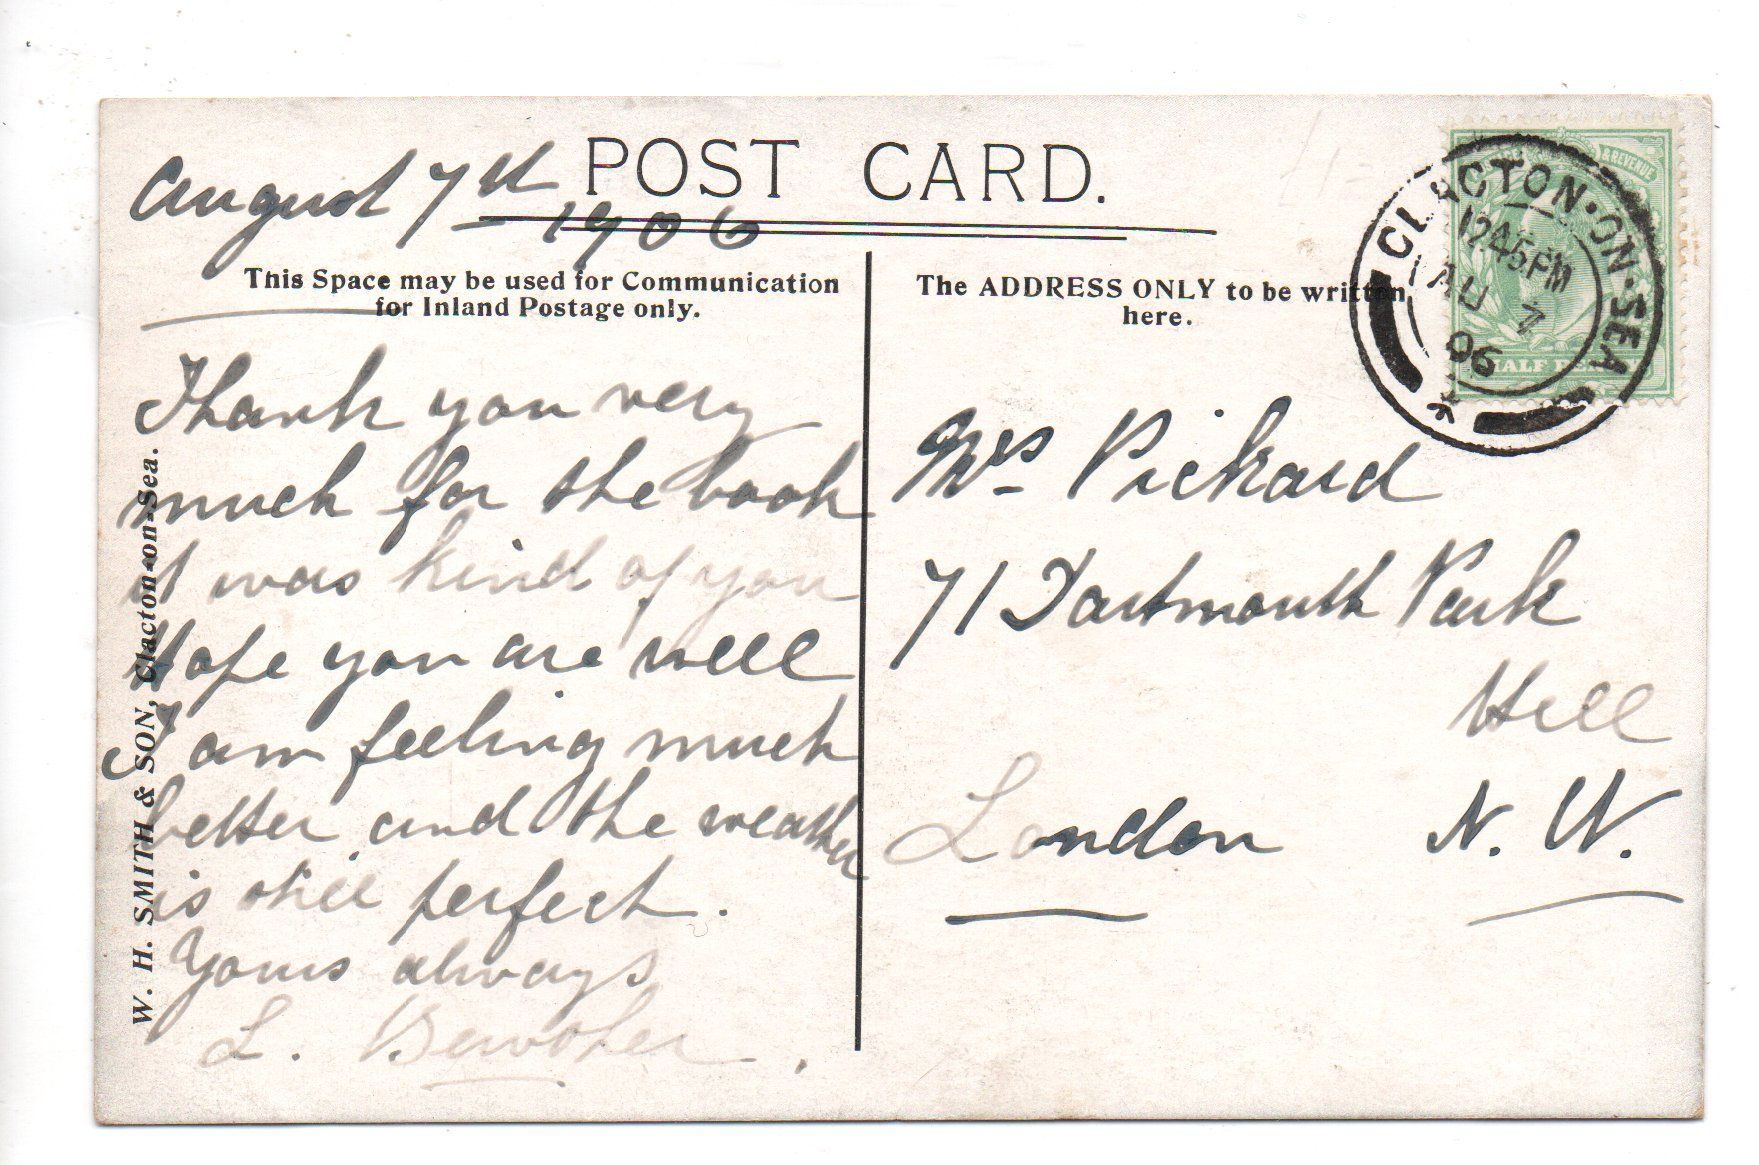 POST CARD.
August 7th
1906
This Space may be used for Communication
for Inland Postage only.
Thank you very
much for the book
it was kind of you
Hope you are well
I am feeling much
better and the weather
is still perfect.
Yours always
L.
W. H. SMITH & SON, Clacton-on-Sea.
The ADDRESS ONLY to be written
here.
Mrs Pickard
71 Dartmouth Park
Hill
London N. W.
CLACTON·ON·SEA
1245PM
AU 7
06
& REVENUE
HALF